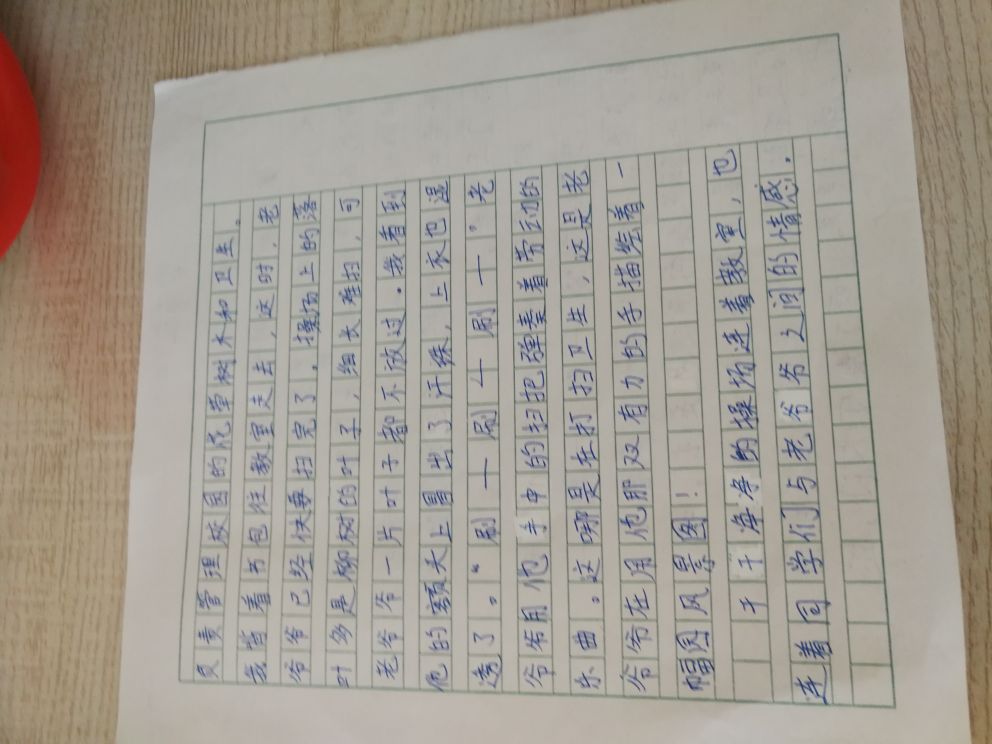 负责管理校园的花草树木和卫生。
我背着书包往教室走去，这时，老
爷爷已经快要扫完了。操场上的落
叶多是柳树的叶子，细长难扫，可
老爷爷一片叶子都不放过。我看到
他的额头上冒出了汗珠，上衣也湿
透了。“刷——刷——刷——”。老
爷爷用他手中的扫把弹奏着劳动的
乐曲。这哪是在打扫卫生，这是老
爷爷在用他那双有力的手描绘着一
幅图风景图！
干干净净的操场连着教室，也
连着同学们与老爷爷之间的情感。